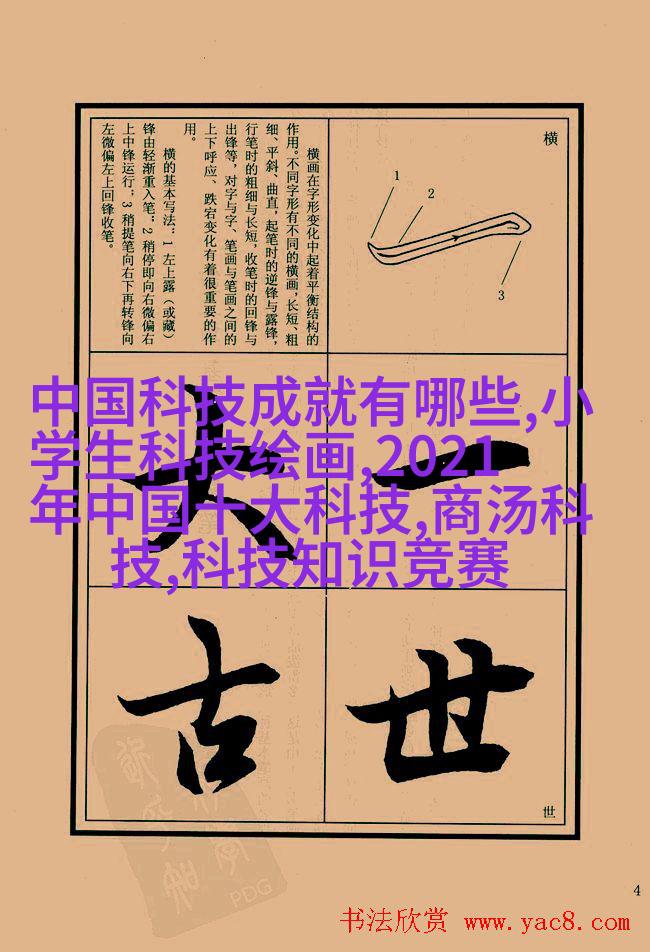 横
1
2
3
横画在字形变化中起着平衡结构的
作用。不同字形有不同的横画，长短、粗
细、平斜、曲直，起笔时的逆锋与露锋，
行笔时的粗细与长短，收笔时的回锋与
出锋等，对字与字、笔画与笔画之间的
上下呼应、跌宕变化有着很重要的作
用。
横的基本写法：1 左上露（或藏）
锋由轻渐重入笔；2 稍停即向右微偏右
上中锋运行；3 稍提笔向右下再转锋向
左微偏左上回锋收笔。
中国科技成就有哪些,小
学生科技绘画,2021
年中国十大科技,商汤科
技,科技知识竞赛
一
大
世
古
世
PDG
4
书法欣赏 www.yac8.com